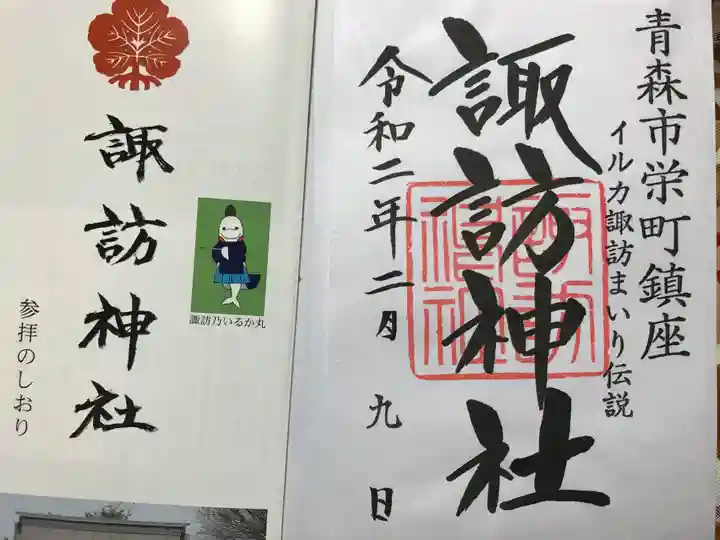 青森市栄町鎮座
イルカ諏訪まいり伝説
諏訪神社
諏訪
神社
令和二年二月九日
諏訪神社
諏訪乃いるか丸
参拝のしおり